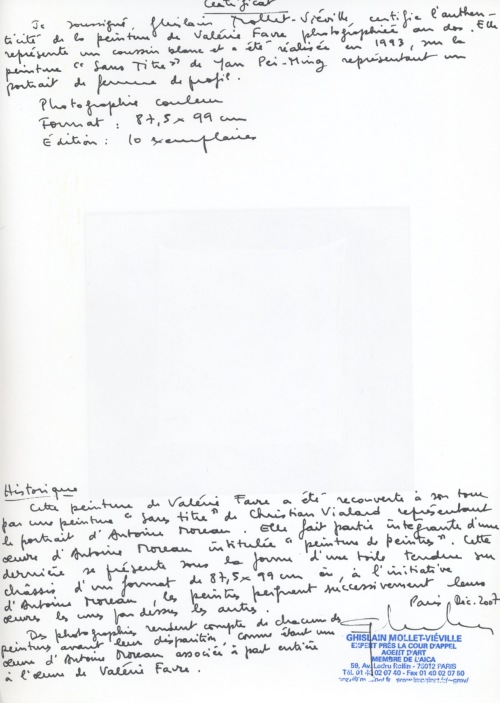 Certificat
Je soussigné, Ghislain Mollet-Viéville, certifie l'authen-
ticité de la peinture de Valérie Favre photographiée au dos. Elle
représente un coussin blanc et a été réalisée en 1993, sur la
peinture "Sans Titre" de Yan Pei-Ming représentant un
portrait de femme de profil.
Photographie couleur
Format : 87,5 x 99 cm
Édition : 10 exemplaires
Historique
Cette peinture de Valérie Favre a été recouverte à son tour
par une peinture "Sans titre" de Christian Vialard représentant
le portrait d'Antoine Moreau. Elle fait partie intégrante d'une
œuvre d'Antoine Moreau intitulée "peinture de peintres". Cette
dernière se présente sous la forme d'une toile tendue sur
châssis d'un format de 87,5 x 99 cm où, à l'initiative
d'Antoine Moreau, les peintres peignent successivement leurs
œuvres les unes par dessus les autres.
Paris Dic. 2007
Des photographies rendent compte de chacune des
peintures avant leur disparition, comme étant une
œuvre d'Antoine Moreau associée à part entière
à l'œuvre de Valérie Favre.
GHISLAIN MOLLET-VIÉVILLE
EXPERT PRÈS LA COUR D'APPEL
AGENT D'ART
MEMBRE DE L'AICA
59, Av. Ledru Rollin - 75012 PARIS
Tél. 01 40 02 07 40 - Fax 01 40 02 07 60